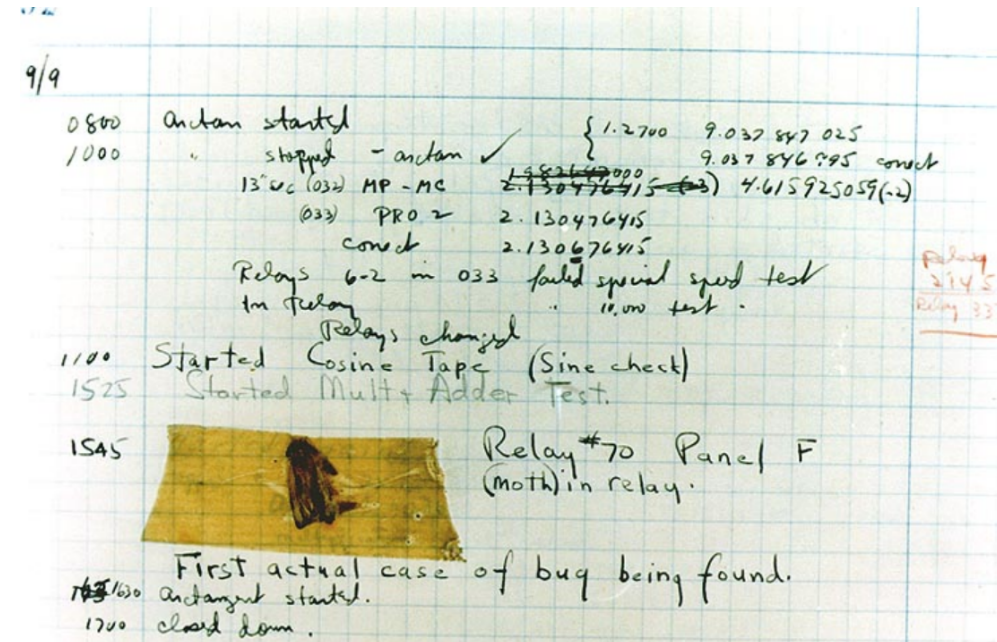 9/9
0800 arctan started { 1.2700 9.037 847 025
1000 " stopped - arctan ✓ 9.037 846 995 correct
13"uc (032) MP - MC 2.130476415 (-3) 4.615925059(-2)
(033) PRO 2 2.130476415
correct 2.130676415
Relays 6-2 in 033 failed special speed test
In Relay " 10,000 test .
Relays changed
Relay
2145
Relay 33
1100 Started Cosine Tape (Sine check)
1525 Started Mult + Adder Test.
1545 Relay #70 Panel F
(moth) in relay.
First actual case of bug being found.
1630 arctangent started.
1700 closed down .